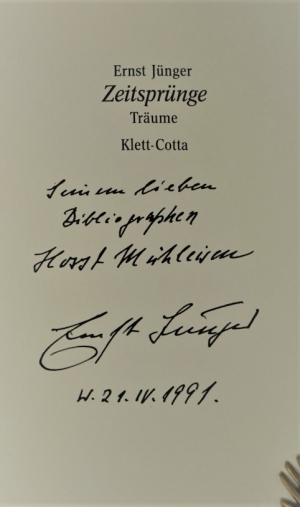 Ernst Jünger
Zeitsprünge
Träume
Klett-Cotta
Seinem lieben
Bibliographen
Horst Mühleisen
Ernst Jünger
W. 21. IV. 1991.